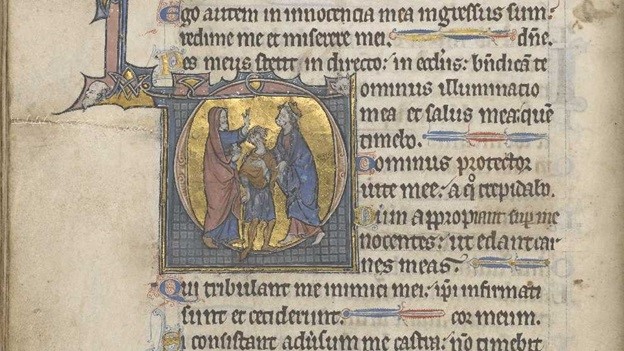 Ego autem in innocencia mea ingressus sum:
redime me et miserere mei. dñe.
Pes meus stetit in directo: in ecclīis: bñdicam te
Dominus illuminatio
mea et salus mea: quem
timebo.
Dominus protector
uite mee: a q̊ trepidabo.
Dum appropiant sup me
nocentes: ut edant car
nes meas.
Qui tribulant me inimici mei: ip̄i infirmati
sunt et ceciderunt. cor meum.
Si consistant adūsum me castra: nō timebit